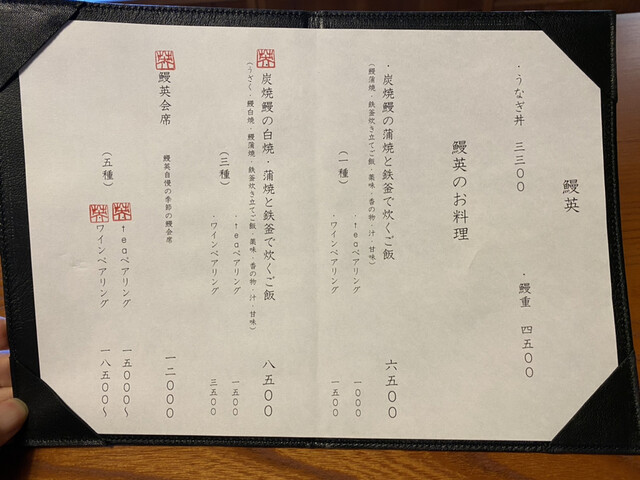 鰻英
・うなぎ丼 三三〇〇
・鰻重 四五〇〇
鰻英のお料理
・炭焼鰻の蒲焼と鉄釜で炊くご飯 六五〇〇
(鰻蒲焼・鉄釜炊き立てご飯・薬味・香の物・汁・甘味)
(一種)
・teaペアリング 一〇〇〇
・ワインペアリング 一五〇〇
炭焼鰻の白焼・蒲焼と鉄釜で炊くご飯 八五〇〇
(うざく・鰻白焼・鰻蒲焼・鉄釜炊き立てご飯・薬味・香の物・汁・甘味)
(三種)
・teaペアリング 一五〇〇
・ワインペアリング 三五〇〇
鰻英会席 一二〇〇〇
鰻英自慢の季節の鰻会席
(五種)
teaペアリング 一五〇〇〇〜
ワインペアリング 一八五〇〇〜